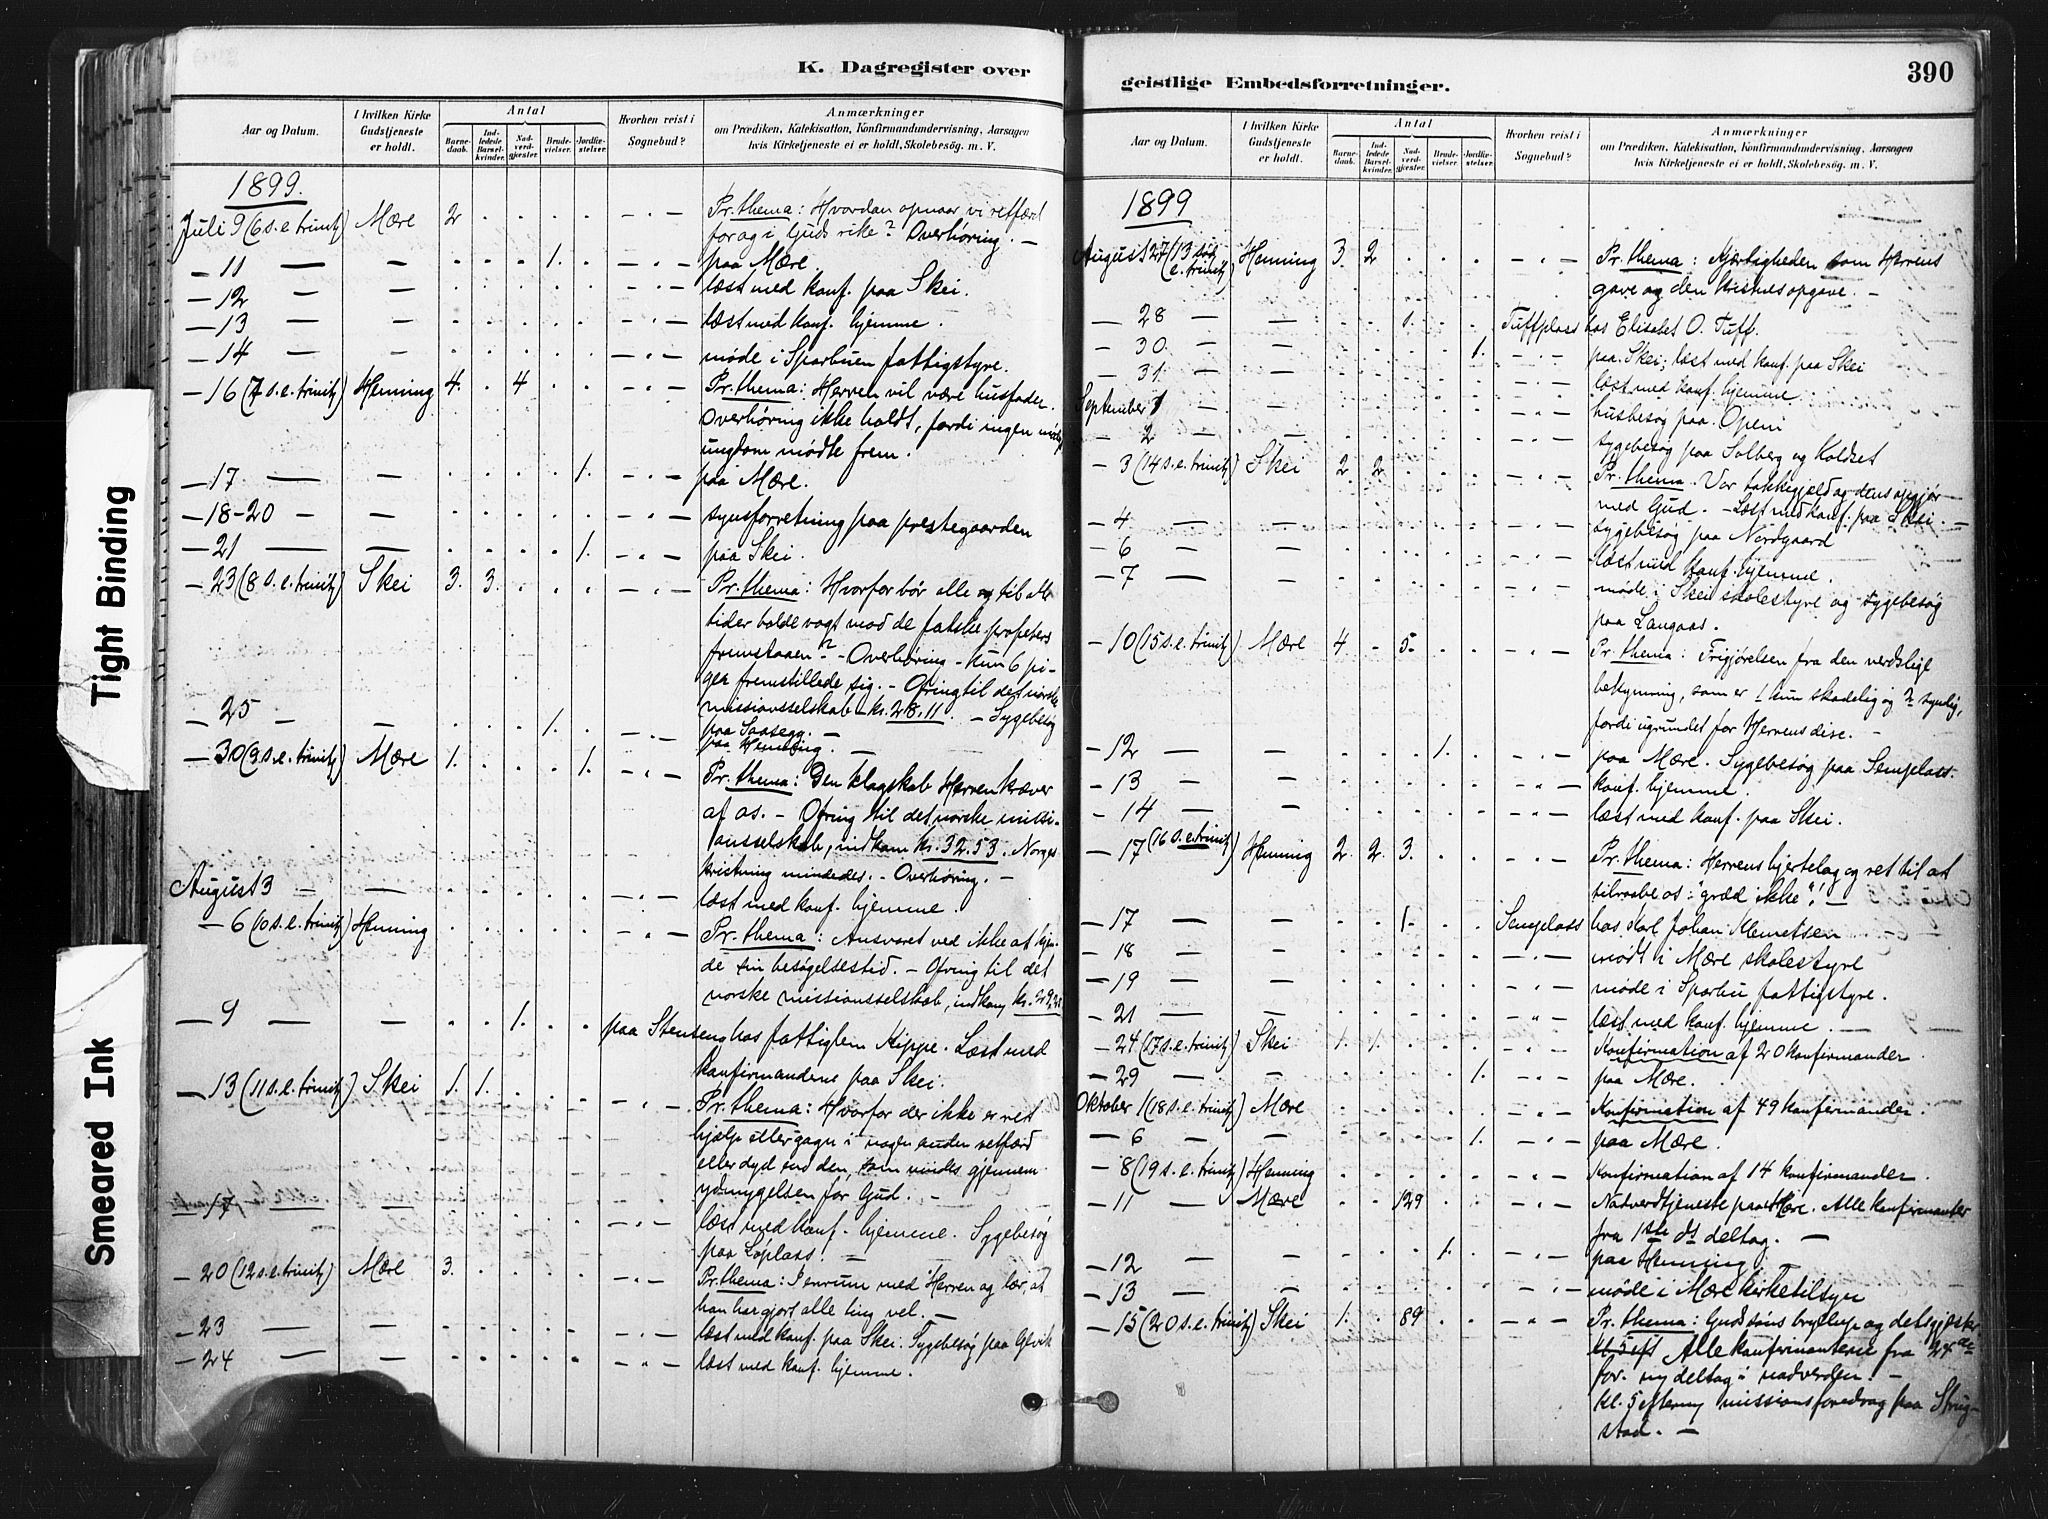 K. Dagregister over
Aar og Datum.
I hvilken Kirke Gudstjeneste er holdt.
Antal
Barne-daab.
Ind-ledede Barsel-kvinder.
Nad-verd-gjester.
Brude-vielser.
Jordfæ-stelser.
Hvorhen reist i Sognebud?
Anmærkninger
om Prædiken, Katekisation, Konfirmandundervisning, Aarsagen
hvis Kirketjeneste ei er holdt, Skolebesøg. m. V.
1899.
Juli 9 (6 s. e. trinit) Mære 2 Pr. thema: Hvordan opnaar vi retfærd
for og i Guds rike? Overhøring. —
— 11 — — 1. paa Mære.
— 12 — — læst med konf. paa Skei.
— 13 — — læst med konf. hjemme.
— 14 — — møde i Sparbuen fattigstyre.
— 16 (7 s. e. trinit) Henning 4. 4 Pr. thema: Herren vil være husfader.
Overhøring ikke holdt, fordi ingen
ungdom mødte frem.
— 17 — — 1. paa Mære.
— 18-20 — — synsforretning paa prestegaarden
— 21 — — 1. paa Skei.
— 23 (8 s. e. trinit) Skei 3. 3. Pr. thema: Hvorfor bør alle og til alle
tider holde vagt mod de falske profeters
fremstaaen? — Overhøring — kun 6 pi-
ger fremstillede sig. — Ofring til det norske
missionsselskab — kr. 28.11. — Sygebesøg
paa
— 25 — — 1. paa Henning. —
— 30 (9 s. e. trinit) Mære 1. 1. Pr. thema: Den klogskab Herren kræver
af os. — Ofring til det norske missi-
onsselskab, indkom kr. 32.53. Norges
kristning mindedes. — Overhøring. —
August 3 — — læst med konf. hjemme.
— 6 (10 s. e. trinit) Henning Pr. thema: Ansvaret ved ikke at kjen-
de sin besøgelsestid. — Ofring til det
norske missionsselskab, indkom kr.
— 9 — — 1. paa Stenseng hos fattiglem Kippe. Læst med
konfirmanderne paa Skei.
— 13 (11 s. e. trinit) Skei 1. 1. Pr. thema: Hvorfor der ikke er ret
hjælp eller gagn i nogen anden retfærd
eller dyd end den, som vindes gjennem
ydmygelsen for Gud. —
— 17 — — læst med konf. hjemme. Sygebesøg
paa Løplass. —
— 20 (12 s. e. trinit) Mære 3. Pr. thema: I enrum med Herren og lær, at
han har gjort alle ting vel. —
— 23 — læst med konf. paa Skei. Sygebesøg paa
— 24 — læst med konf. hjemme.
geistlige Embedsforretninger.
390
Aar og Datum.
I hvilken Kirke Gudstjeneste er holdt.
Antal
Barne-daab.
Ind-ledede Barsel-kvinder.
Nad-verd-gjester.
Brude-vielser.
Jordfæ-stelser.
Hvorhen reist i Sognebud?
Anmærkninger
om Prædiken, Katekisation, Konfirmandundervisning, Aarsagen
hvis Kirketjeneste ei er holdt, Skolebesøg. m. V.
1899
August 27 (13 søn e. trinit) Henning 3. 2 Pr. thema: Kjærligheden som Herrens
gave og den kristnes opgave. —
— 28 — — 1. Tuffplass hos Elisabet O. Tuff.
— 30. — — 1. paa Skei; læst med konf. paa Skei
— 31. — — læst med konf. hjemme
September 1 — — husbesøg paa Opem
— 2 — — sygebesøg paa Solberg og Holdset
— 3 (14 s. e. trinit) Skei 2. 2. Pr. thema. Vor takkegjæld og dens opgjør
med Gud. — Læst med konf. paa Skei. —
— 4 — — sygebesøg paa Nordgaard
— 6 — — læst med konf. hjemme.
— 7 — — møde i Skei skolestyre og sygebesøg
paa Langaas.
— 10 (15 s. e. trinit) Mære 4 5. Pr. thema: Frigjørelsen fra den verdslige
bekymring, som er 1 kun skadelig og 2 syndig,
fordi ugrundet for Herrens disc. —
— 12 — — 1. paa Mære. Sygebesøg paa Semplass.
— 13 — — konf. hjemme.
— 14 — — læst med konf. paa Skei.
— 17 (16 s. e. trinit) Henning 2. 2. 3. Pr. thema: Herrens hjertelag og ret til at
tilraabe os: "græd ikke"! —
— 17 — — 1. Semplass hos Karl Johan Klemetsen
— 18 — — mødt i Mære skolestyre
— 19 — — møde i Sparbu fattigstyre.
— 21 — — læst med konf. hjemme. —
— 24 (17 s. e. trinit) Skei 1. 1. Konfirmation af 20 konfirmander.
— 29 — — 1. paa Mære.
Oktober 1 (18 s. e. trinit) Mære Konfirmation af 49 konfirmander.
— 6 — — 1. paa Mære.
— 8 (19 s. e. trinit) Henning Konfirmation af 14 konfirmander.
— 11 — Mære 129 Nadverdtjeneste paa Mære. Alle konfirmanter
fra 1ste ds deltog. —
— 12 — — 1. paa Henning
— 13 — — møde i Mære kirketilsyn
— 15 (20 s. e. trinit) Skei 1. 89 Pr. thema: Gudssøns bryllup og dets gjæster.
kl. 5 eft Alle konfirmanterne fra 24de
for. my deltog i nadverden. —
kl. 5 efterm. missionsforedrag paa Strug-
stad. —
Tight Binding
Smeared Ink